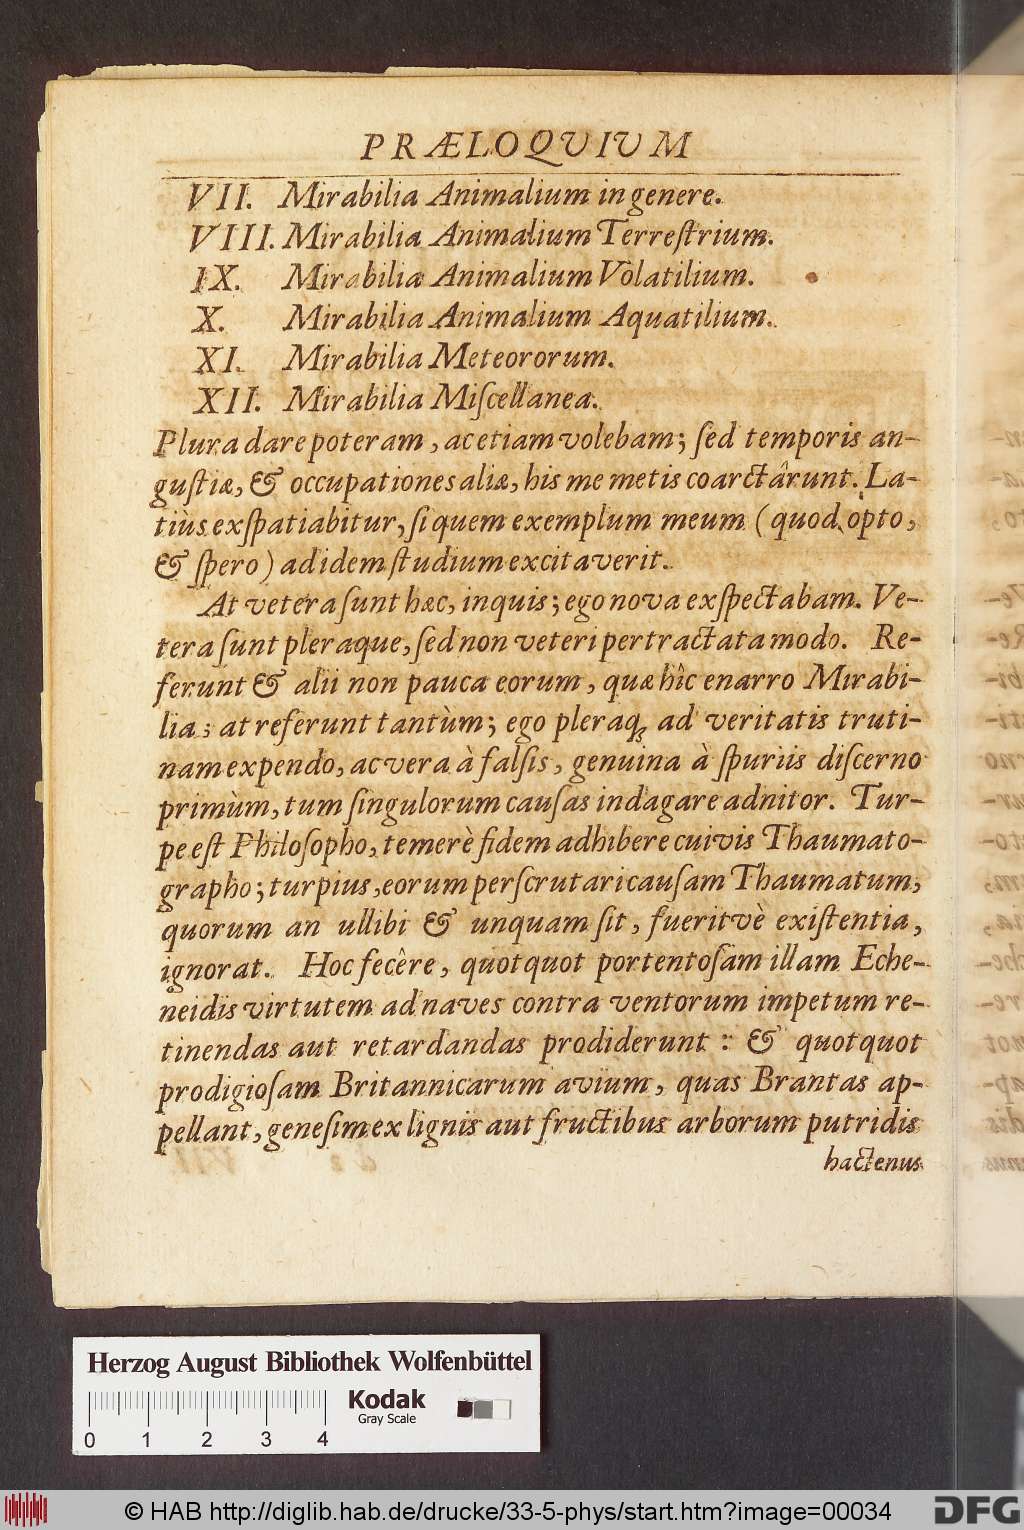 PRÆLOQVIVM
VII. Mirabilia Animalium in genere.
VIII. Mirabilia Animalium Terreſtrium.
IX. Mirabilia Animalium Volatilium.
X. Mirabilia Animalium Aquatilium.
XI. Mirabilia Meteororum.
XII. Mirabilia Miſcellanea.
Plura dare poteram, ac etiam volebam; ſed temporis an-
guſtiæ, & occupationes aliæ, his me metis coarctârunt. La-
tiùs exſpatiabitur, ſi quem exemplum meum (quod opto,
& ſpero) ad idem ſtudium excitaverit.
At vetera ſunt hæc, inquis; ego nova exſpectabam. Ve-
tera ſunt pleraque, ſed non veteri pertractata modo. Re-
ferunt & alii non pauca eorum, quæ hîc enarro Mirabi-
lia; at referunt tantùm; ego pleraq; ad veritatis truti-
nam expendo, ac vera à falſis, genuina à ſpuriis diſcerno
primùm, tum ſingulorum cauſas indagare adnitor. Tur-
pe eſt Philoſopho, temerè fidem adhibere cuivis Thaumato-
grapho; turpius, eorum perſcrutari cauſam Thaumatum,
quorum an ullibi & unquam ſit, fueritvè exiſtentia,
ignorat. Hoc fecêre, quotquot portentoſam illam Eche-
neidis virtutem ad naves contra ventorum impetum re-
tinendas aut retardandas prodiderunt : & quotquot
prodigioſam Britannicarum avium, quas Brantas ap-
pellant, geneſim ex lignis aut fructibus arborum putridis
hactenus
Herzog August Bibliothek Wolfenbüttel
Kodak
Gray Scale
0 1 2 3 4
© HAB http://diglib.hab.de/drucke/33-5-phys/start.htm?image=00034
DFG